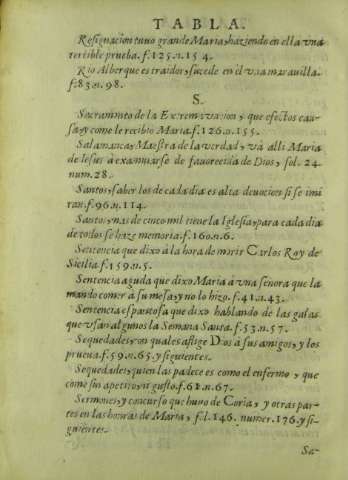 TABLA.
Resignacion tuuo grande Maria, haziendo en ella vna
terrible prueba. f. 125. n. 154.
Rio Alberque es traidor, sucede en èl vna marauilla.
f. 83. n. 98.
S.
Sacramento de la Extremavncion, que efectos cau-
sa, y como le recibio Maria. f. 126. n. 155.
Salamanca, Maestra de la verdad, và alli Maria
de Iesus à examinarse de fauorecida de Dios, fol. 24.
num. 28.
Santos, saber los de cada dia es alta deuocion si se imi
tan. f. 96. n. 114.
Santos, mas de cinco mil tiene la Iglesia, para cada dia
de todos se haze memoria. f. 160. n. 6.
Sentencia que dixo à la hora de morir Carlos Rey de
Sicilia f. 159. n. 5.
Sentencia aguda que dixo Maria à vna señora que la
mandò comer à su mesa, y no lo hizo. f. 41. n. 43.
Sentencia espantosa que dixo hablando de las galas
que vsan algunos la Semana Santa. f. 53. n. 57.
Sequedades, con quales aflige Dios à sus amigos, y los
prueua. f. 59. n. 65. y siguientes.
Sequedades, quien las padece es como el enfermo, que
come sin apetito, ni gusto. f. 61. n. 67.
Sermones, y concurso que huuo de Coria, y otras par-
tes en las honras de Maria, f. l. 146. numer. 176. y si-
guientes.
Sa-